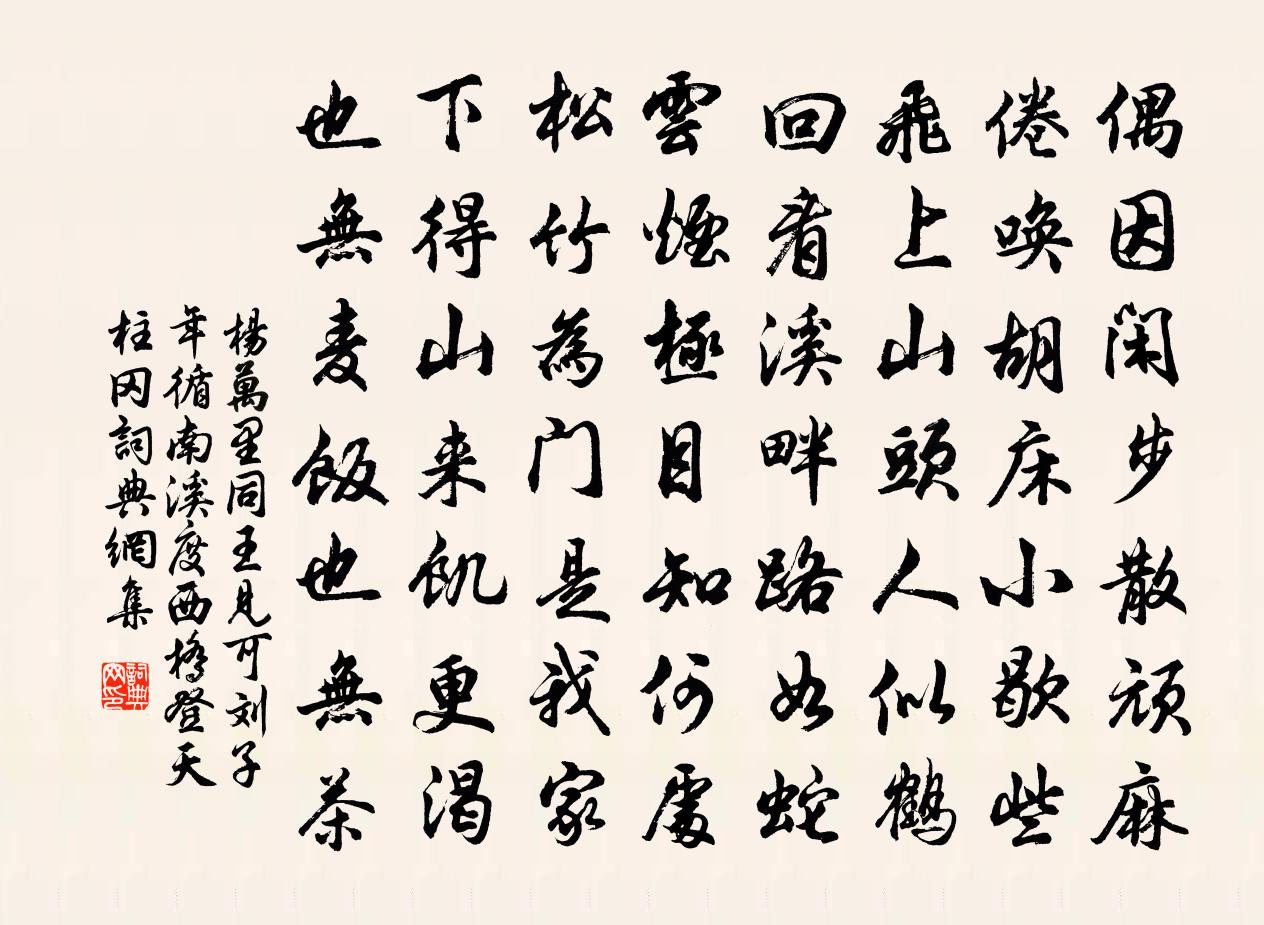 偶因閑步散頑麻
倦喚胡床小歇些
飛上山頭人似鶴
回看溪畔路如蛇
雲煙極目知何處
松竹為门是我家
下得山来飢更渴
也無麦飯也無茶
楊萬里同王見可刘子
年循南溪度西橋登天
柱冈詞典網集